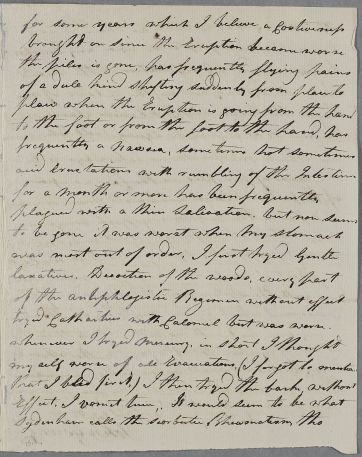 for some years which I believe a Costiveness
brought on since the Eruption became worse
the piles is gone, has frequently flying pains
of a dull kind shifting suddenly from place to
place when the Eruption is going from the hand
to the foot or from the foot to the hand, has
frequently a nausea, sometimes hot sometimes
acid Eructations with rumbling of the Intestines
for a month or more has been frequently
plagued with a thin Salivation, but now seems
to be gone it was worst when my stomach
was most out of order, I first tryed Gentle
laxatives, Decoction of the woods, every part
of the antiphlogistic Regimen without effect
tryed Cathartics with Calomel but was worse
whenever I tryed mercury, in short I thought
my self worse of all Evacuations, (I forgot to mention
that I bled first) I then tryed the bark, without
Effect, I vomit too, It would seem to be what
Sydenham calls the Scorbutic Rheumatism, tho